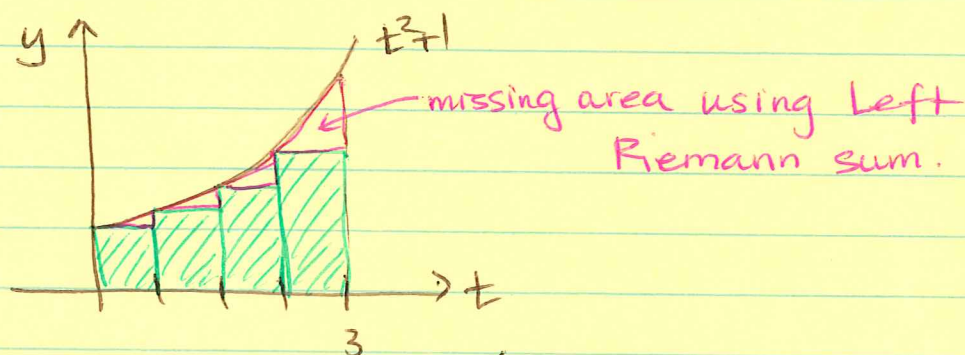 y
t²+1
missing area using Left
Riemann sum.
t
3